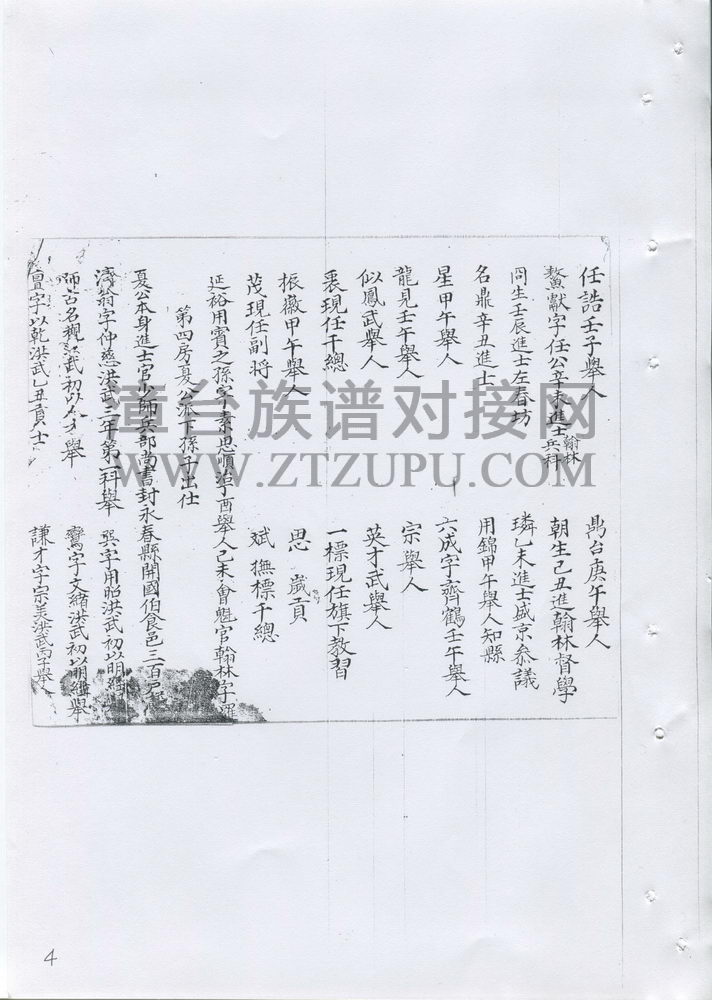 任誥壬子舉人 鼎台庚午舉人
鰲獻字任公辛未進士翰林兵科 朝生己丑進翰林督學
同生壬辰進士左春坊 璘乙未進士盛京叅議
名鼎辛丑進士 用錦甲午舉人知縣
星甲午舉人 六成字齊鶴壬午舉人
龍見壬午舉人 宗舉人
似鳳武舉人 英才武舉人
裘現任千總 一標現任旗下教習
振徽甲午舉人 思歲貢
茂現任副將 斌撫標千總
延裕用賓之孫字素思順治丁酉舉人己未會魁官翰林字
第四房夏公派下孫子出仕
夏公本身進士官少師兵部尚書封永春縣開國伯食邑三百
濟翁字仲慈洪武三年第一科舉 巽字用昭洪武初以明
師古名觀洪武初以人才舉 鸞字文緒洪武初以明經舉
亶字以乾洪武乙丑貢士 謙才字宗美洪武丙子舉人
漳台族谱对接网
WWW.ZTZUPU.COM
4